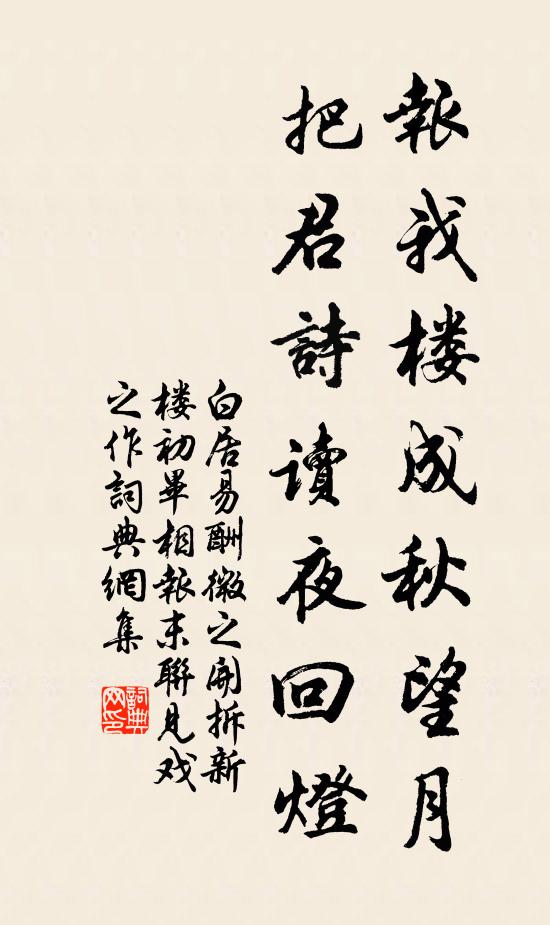 報我楼成秋望月
把君詩讀夜回燈
白居易酬微之開拆新
楼初畢相報末聯見戏
之作詞典網集
詞典
网印